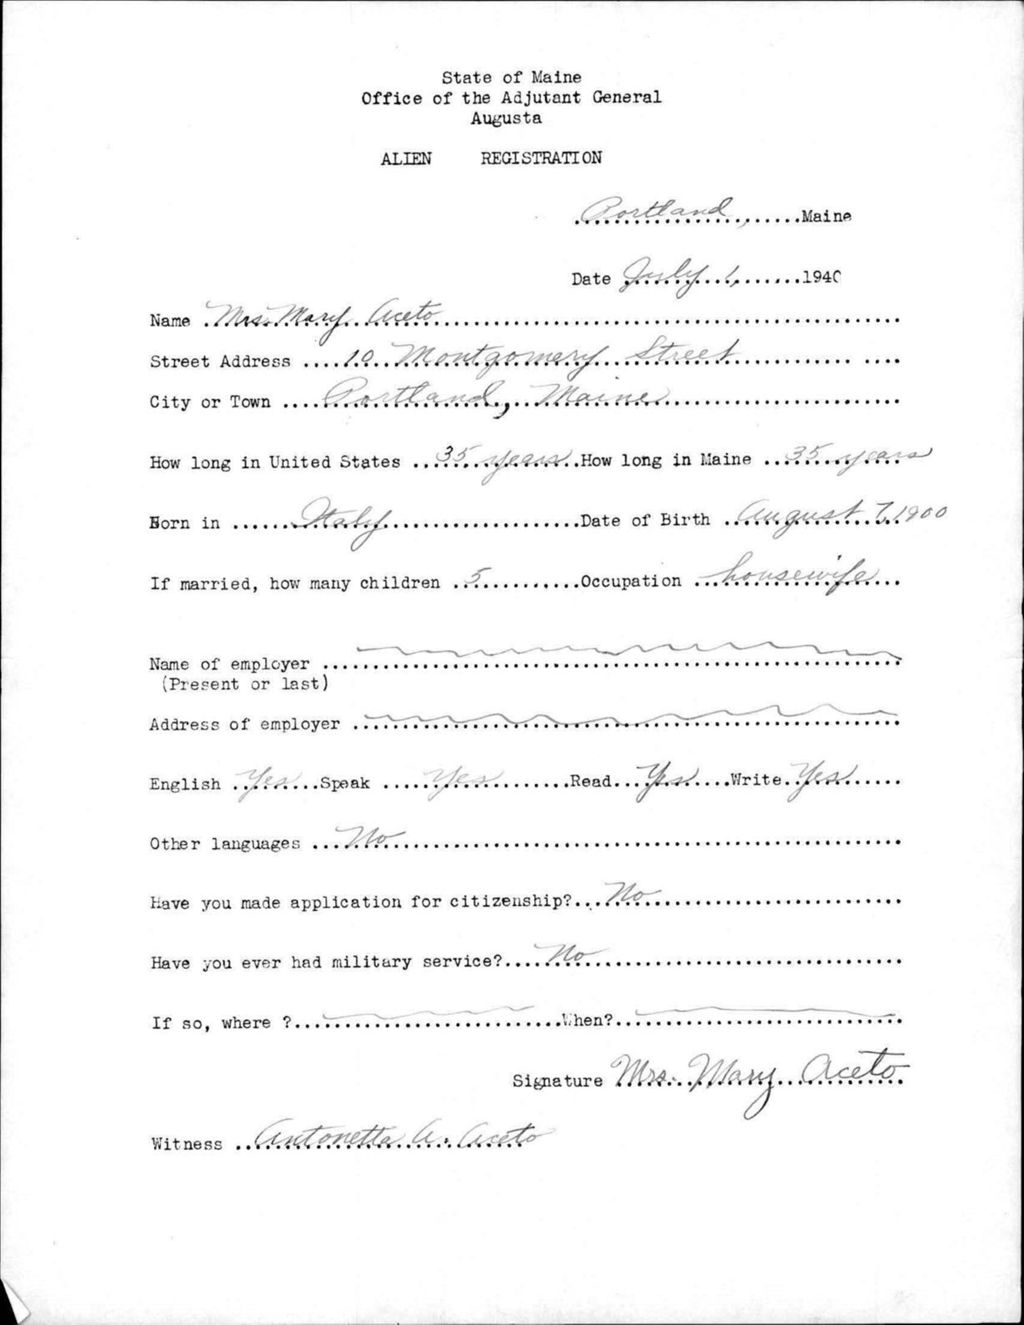 State of Maine
Office of the Adjutant General
Augusta
ALIEN REGISTRATION
Portland, Maine
Date July 1, 1940
Name Mrs. Mary Aceto
Street Address 10 Montgomery Street
City or Town Portland, Maine
How long in United States 35 years How long in Maine 35 years
Born in Italy Date of Birth August 7, 1900
If married, how many children 5 Occupation housewife
Name of employer
(Present or last)
Address of employer
English Yes Speak Yes Read Yes Write Yes
Other languages No
Have you made application for citizenship? No
Have you ever had military service? No
If so, where ? When?
Signature Mrs. Mary Aceto
Witness Antonetta A. Aceto